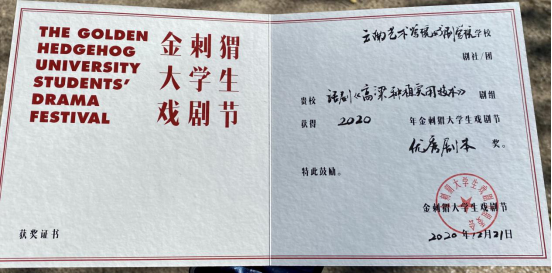 THE GOLDEN
HEDGEHOG
UNIVERSITY
STUDENTS'
DRAMA
FESTIVAL
金刺猬
大学生
戏剧节
获奖证书
云南艺术学院戏剧学院学校
剧社/团
贵校 话剧《高深种植实用技术》 剧组
获得 2020 年金刺猬大学生戏剧节
优秀剧本 奖。
特此鼓励。
金刺猬大学生戏剧节
2020 年 12 月 21 日